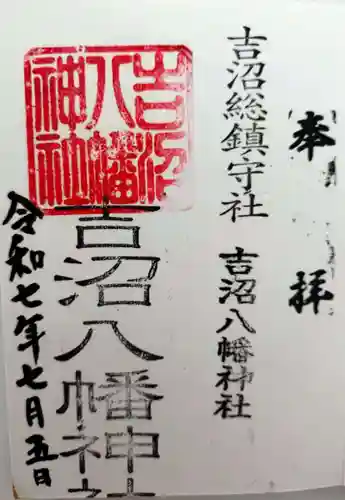 奉拝
吉沼総鎮守社 吉沼八幡神社
吉沼八幡神社
吉沼八幡神社
令和七年七月五日